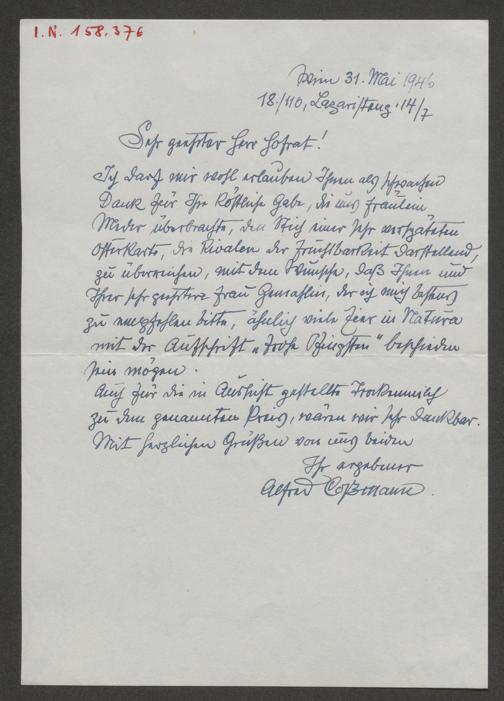 I.N. 158.376
Wien 31. Mai 1946
18./110, Lazaristeng. 14/7
Sehr geehrter Herr Hofrat!
Ich darf mir wohl erlauben Ihnen als schwachen
Dank für Ihre köstliche Gabe, die uns Fräulein
Meder überbrachte, den Stich einer sehr verspäteten
Osterkarte, die Rivalen der Fruchtbarkeit darstellend,
zu überreichen, mit dem Wunsche, daß Ihnen und
Ihrer sehr geehrten Frau Gemahlin, der ich mich bestens
zu empfehlen bitte, ähnlich viele Eier in Natura
mit der Aufschrift „Frohe Pfingsten" beschieden
sein mögen.
Auch für die in Aussicht gestellte Trockenmilch
zu dem genannten Preis, wären wir sehr dankbar.
Mit herzlichen Grüßen von uns beiden
Ihr ergebener
Alfred Coßmann.